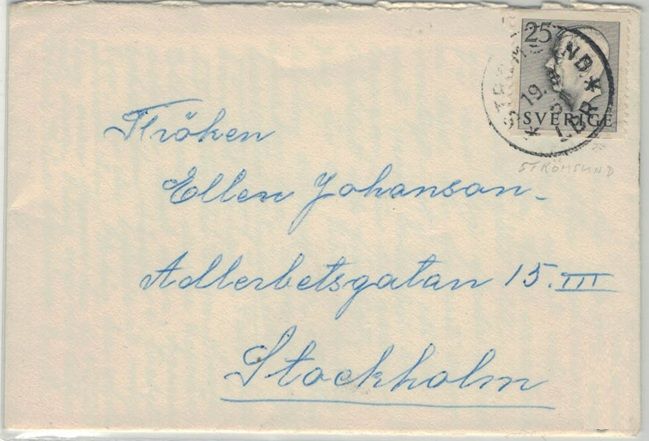 25
STRÖMSUND * LBR *
19.
SVERIGE
STRÖMSUND
Fröken
Ellen Johanson.
Adlerbetsgatan 15. III
Stockholm